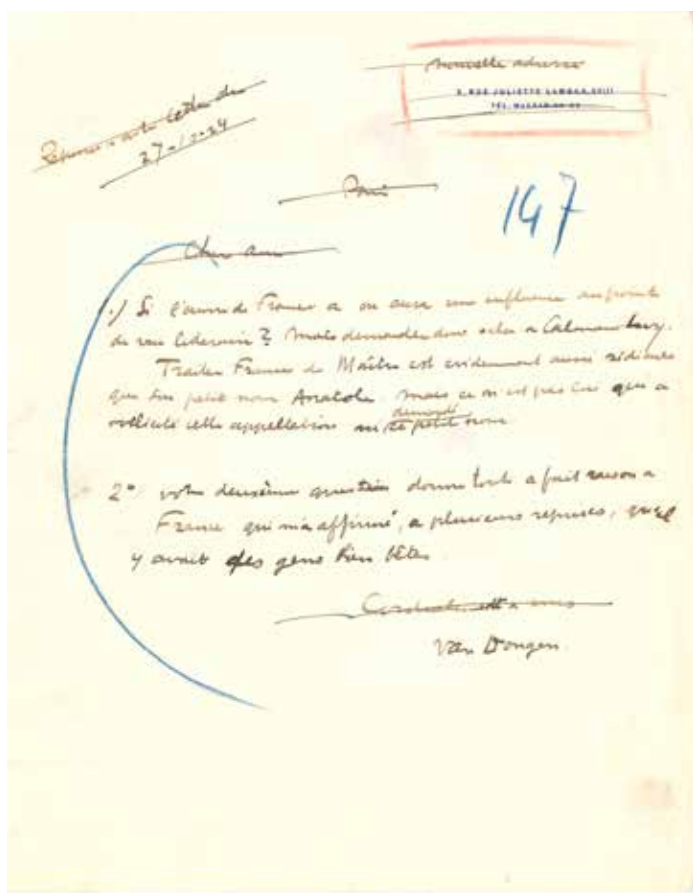 nouvelle adresse
5, RUE JULIETTE LAMBER, XVII
TÉL. WAGRAM
Réponse a votre lettre du
27-12-24
Paris
147
Cher ami
1./ Si l'œuvre de France a ou aura une influence au point
de vue litteraire ? Mais demandez donc cela a Calmann Levy.
Traiter France de Maître est evidemment aussi ridicule
que son petit nom Anatole. Mais ce n'est pas lui qui a
sollicité cette appellation ni demandé ce petit nom
2° votre deuxième question donne tout a fait raison a
France qui m'a affirmé, a plusieurs reprises, qu'il
y avait des gens bien bêtes
Cordialement a vous
Van Dongen.